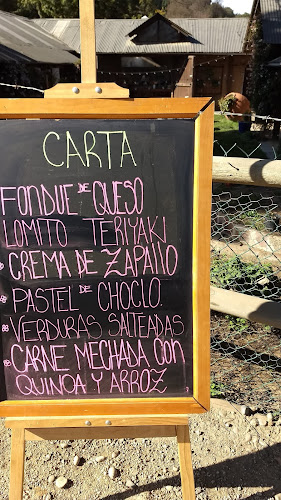 CARTA
FONDUE DE QUESO
LOMITO TERIYAKI
CREMA DE ZAPALLO
PASTEL DE CHOCLO.
VERDURAS SALTEADAS
CARNE MECHADA CON
QUINOA Y ARROZ